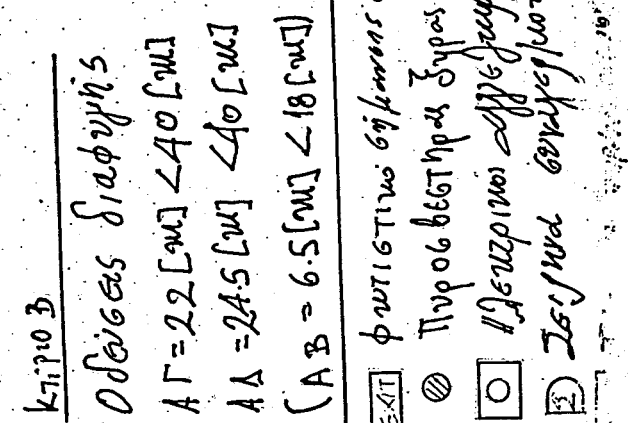 κτίριο B
Οδεύσεις διαφυγής
ΑΓ = 22 [m] < 40 [m]
ΑΔ = 24.5 [m] < 40 [m]
(ΑΒ = 6.5 [m] < 18 [m])
EXIT φωτιστικό σήμανσης
Πυροσβεστήρας ξηράς
ηλεκτρικός
Σειρήνα συναγερμού